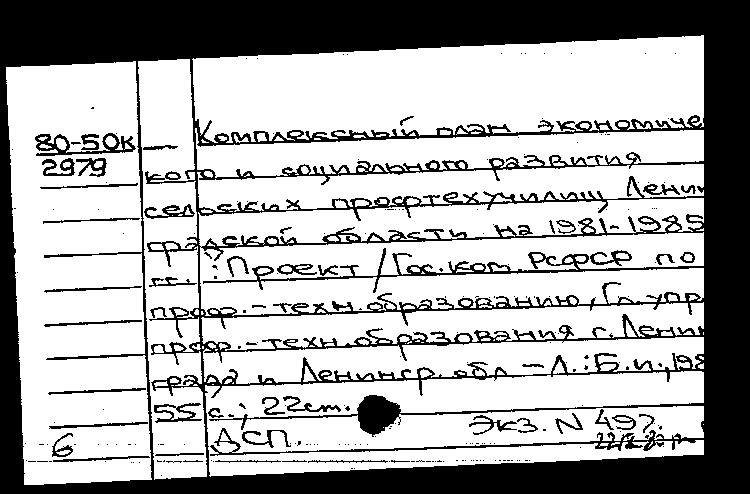 80-50к — Комплексный план экономичес
2979 кого и социального развития
сельских профтехучилищ Ленин
градской области на 1981-1985
гг.: Проект / Гос. ком. РСФСР по
проф.-техн. образованию, Гл. упр
проф.-техн. образования г. Ленин
града и Ленингр. обл — Л.: Б.и., 198
55 с.; 22 см.
6 ДСП. Экз. N 497.